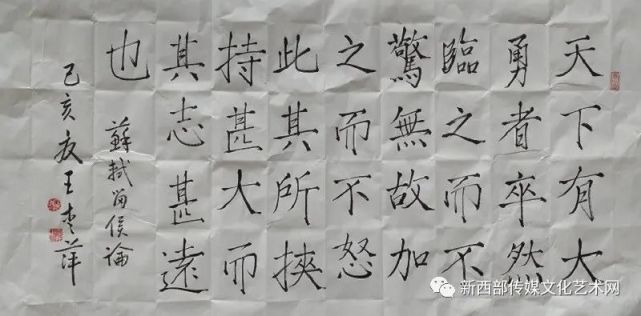 天下有大
勇者卒然
臨之而不
驚無故加
之而不怒
此其所挾
持甚大而
其志甚遠
也
蘇軾留侯論
己亥 王 萍
新西部传媒文化艺术网